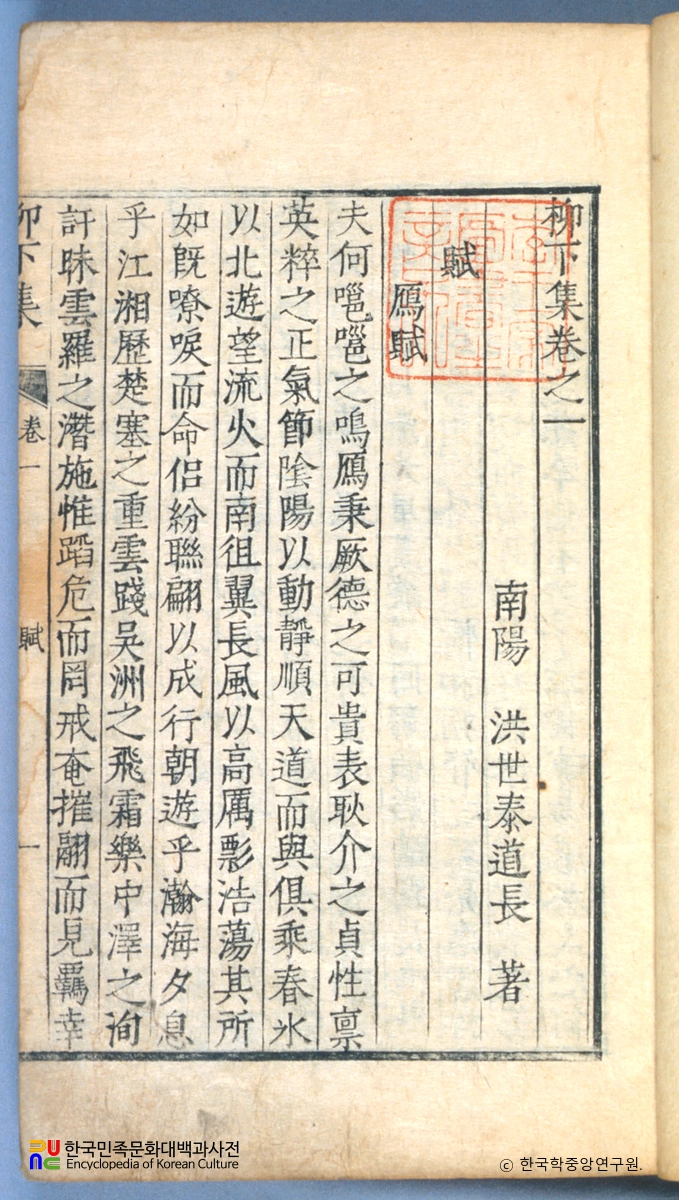 柳下集卷之一
南陽 洪世泰道長 著
賦
鴈賦
夫何嗈嗈之鳴鴈秉厥德之可貴表耿介之貞性禀
英粹之正氣節陰陽以動靜順天道而與俱乘春氷
以北遊望流火而南徂翼長風以高厲影浩蕩其所
如旣嘹唳而命侶紛聯翩以成行朝遊乎瀚海夕息
乎江湘歷楚塞之重雲踐吳洲之飛霜樂中澤之洵
訏昧雲羅之潛施惟蹈危而罔戒奄摧翮而見羈幸
柳下集
卷一
賦
一
한국민족문화대백과사전
Encyclopedia of Korean Culture
ⓒ 한국학중앙연구원.